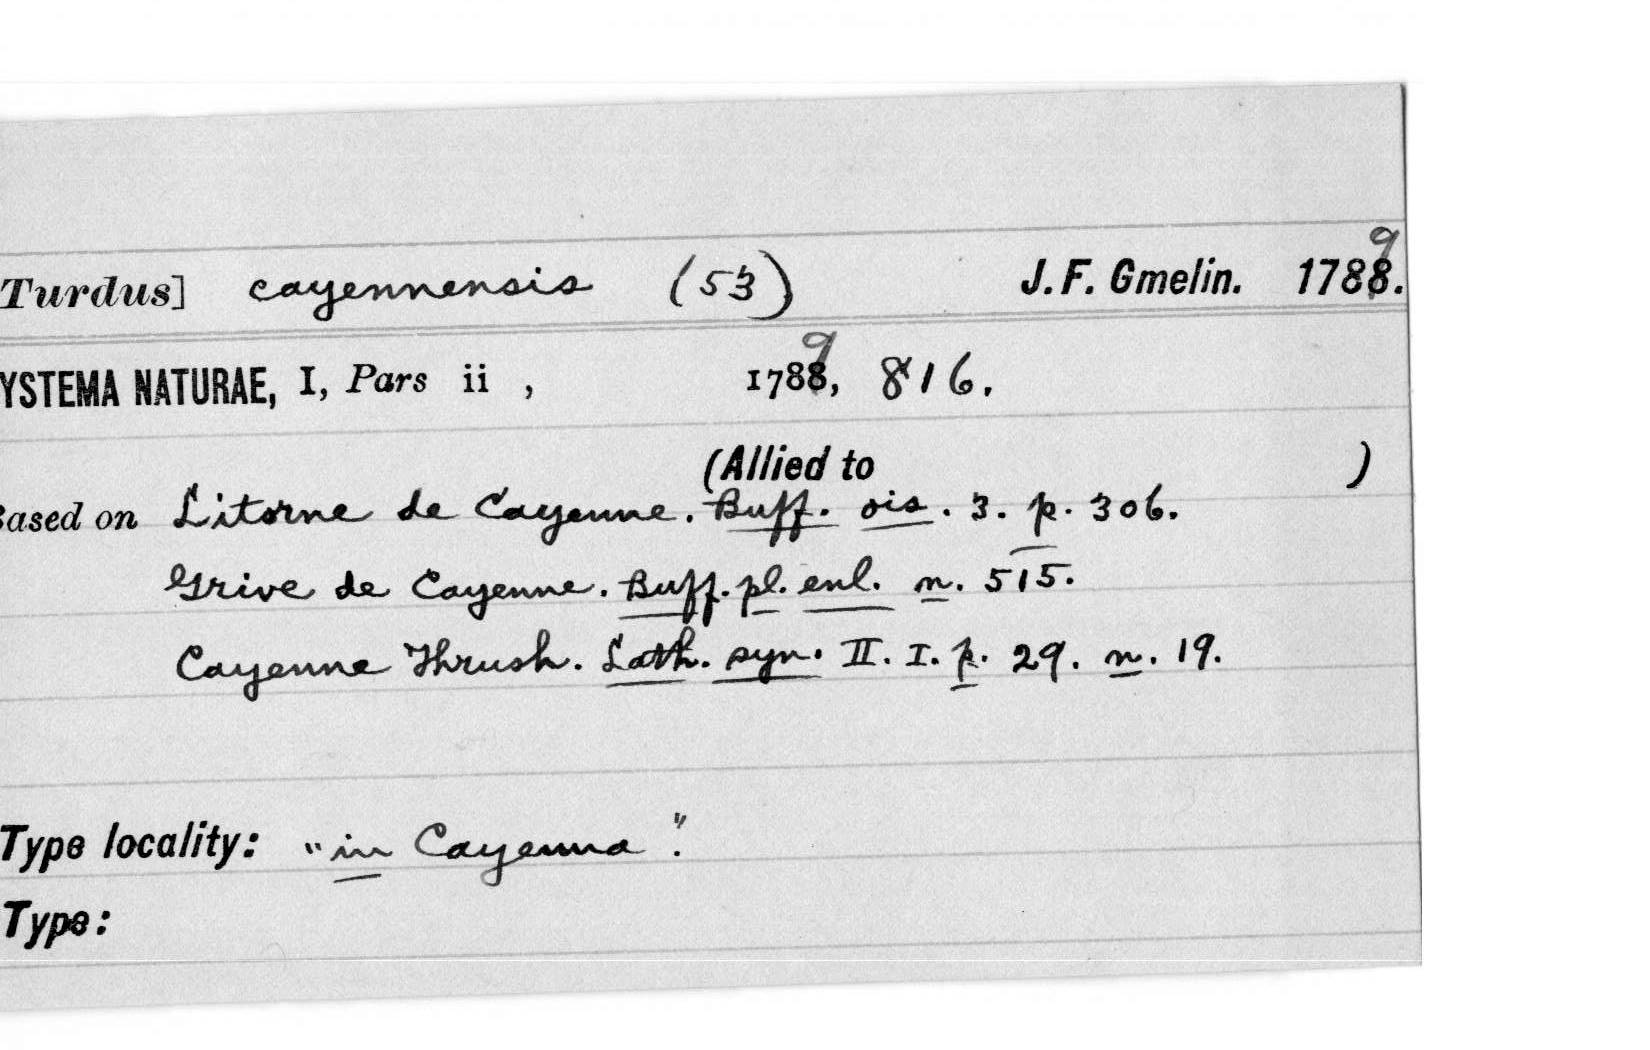 Turdus] cayennensis (53) J. F. Gmelin. 1788. 9
YSTEMA NATURAE, I, Pars ii , 1788, 9 816.
(Allied to )
Based on Litorne de Cayenne. Buff. ois. 3. p. 306.
Grive de Cayenne. Buff. pl. enl. n. 515.
Cayenne Thrush. Lath. syn. II. I. p. 29. n. 19.
Type locality: "in Cayenna".
Type: